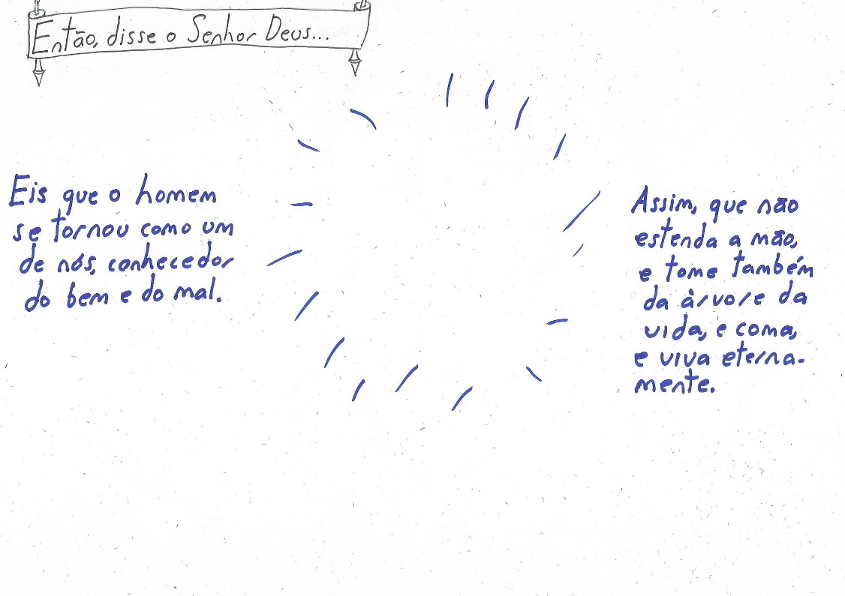 Então, disse o Senhor Deus...
Eis que o homem
se tornou como um
de nós, conhecedor
do bem e do mal.
Assim, que não
estenda a mão,
e tome também
da àrvore da
vida, e coma,
e viva eterna-
mente.